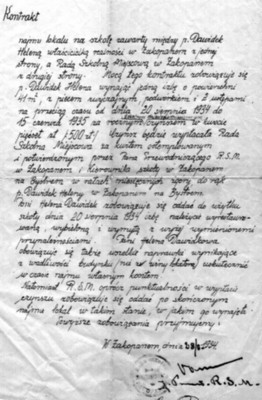 Kontrakt
najmu lokalu na szkołę zawarty między p. Gawidek
Heleną właścicielką realności w Zakopanem z jednej
strony, a Radą Szkolną Miejscową w Zakopanem
z drugiej strony. Mocą tego kontraktu zobowiązuje się
p. Gawidek Helena wynająć jedną izbę o powierzchni
41 m², z piecem zwyczajnym podwórzem i 2 ustępami
na przeciąg czasu od dnia 20 sierpnia 1934 do
15 czerwca 1935 za rocznym czynszem w kwocie
pięćset zł (500 zł). Czynsz będzie wypłacała Rada
Szkolna Miejscowa za kwitem ostemplowanym
i potwierdzonym przez Pana Przewodniczącego R.S.M.
w Zakopanem i Kierownika szkoły w Zakopanem
na Bystrem w ratach miesięcznych z góry do rąk
p. Gawidek Heleny w Zakopanem na Bystrem.
Pani Helena Gawidek zobowiązuje się oddać do użytku
szkoły dnia 20 sierpnia 1934 izbę należycie
wybieloną i wymytą z wyżej wymienionemi
przynależnościami. Pani Helena Gawidkowa
obowiązuje się także wszelkie naprawki wynikające
z wadliwości budynku uskuteczniać
w czasie najmu własnym kosztem.
Natomiast R.S.M. oprócz punktualności w wypłacie
czynszu zobowiązuje się oddać po skończonym
najmie lokal w takim stanie, w jakim go wynajęła.
Powyższe zobowiązania przyjmujemy:
W Zakopanem, dnia
R.S.M.